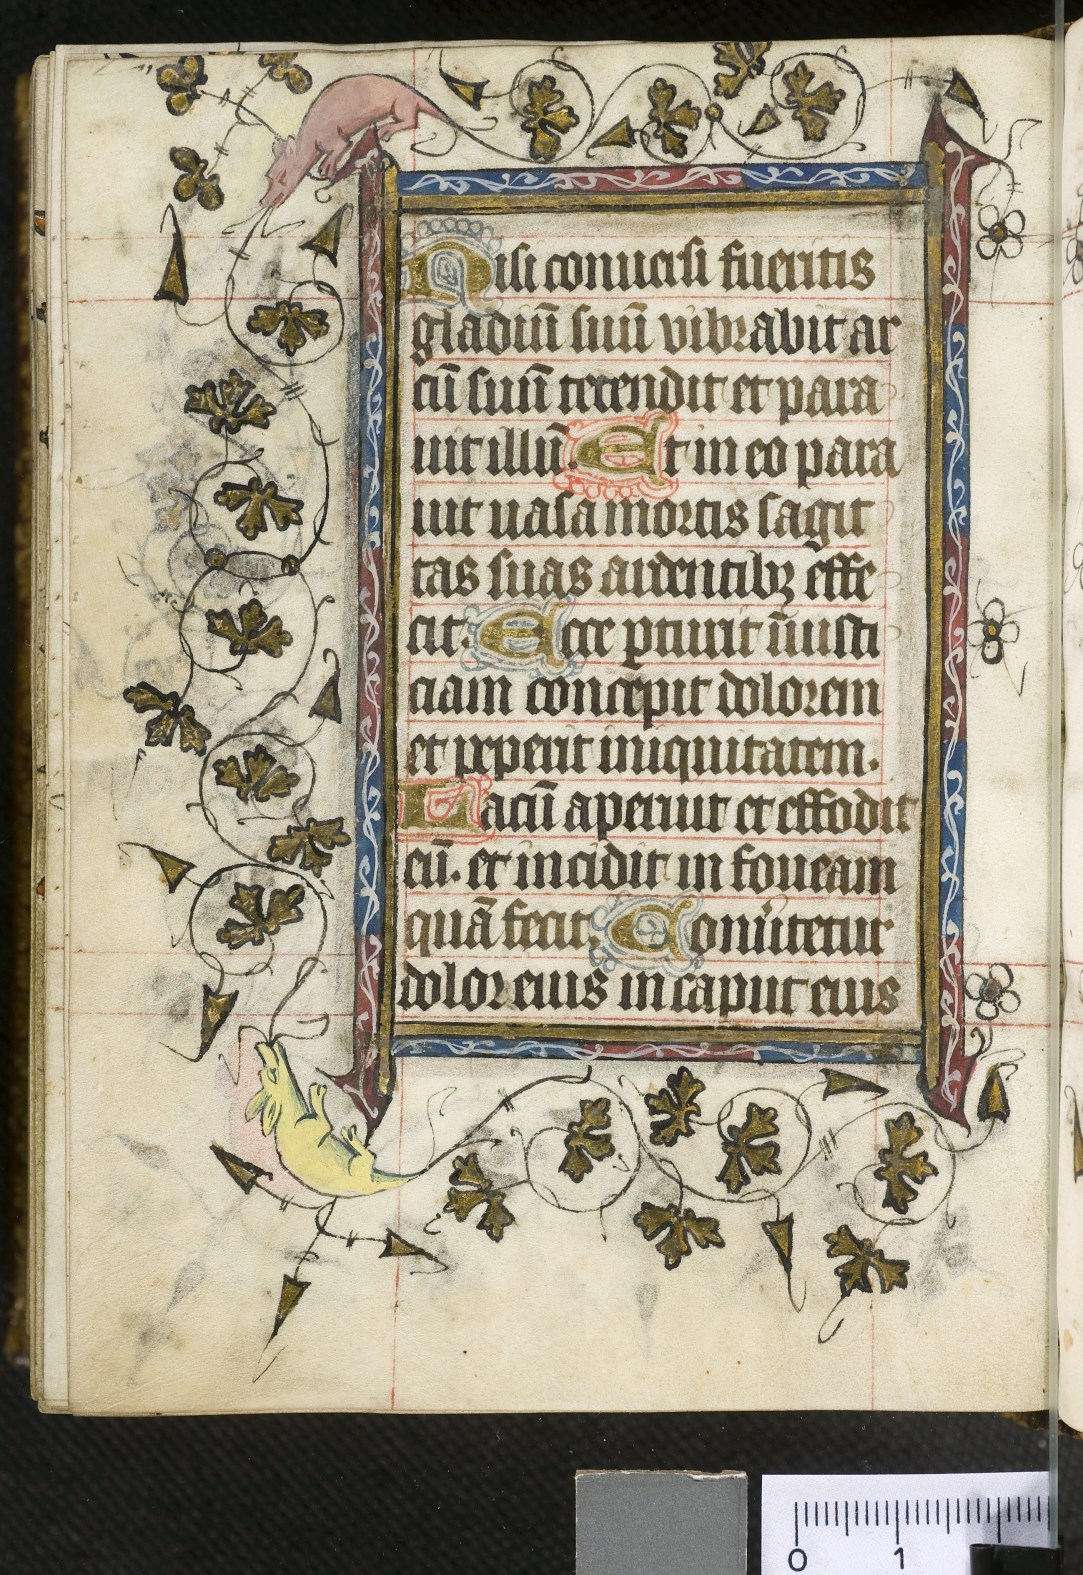 Nisi conuersi fueritis
gladiū suū vibrabit ar
cū suū tetendit et para
uit illū. Et in eo para
uit uasa mortis sagit
tas suas ardentibꝫ effe
cit. Ecce ꝑturit īiusti
ciam concepit dolorem
et peperit iniquitatem.
Lacū aperuit et effodit
eū. et incidit in foueam
quā fecit. Conu͛tetur
dolor eius in caput eius
0 1